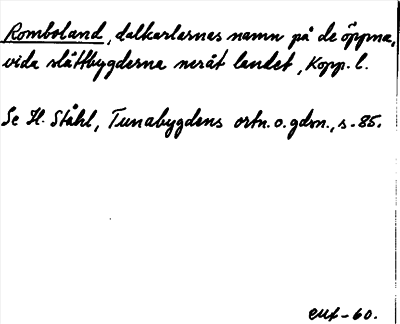 Romboland, dalkarlarnas namn på de öppna,
vida slättbygderna neråt landet, Kopp. l.
Se H. Ståhl, Tunabygdens ortn. o. gdsn., s. 85.
-60.